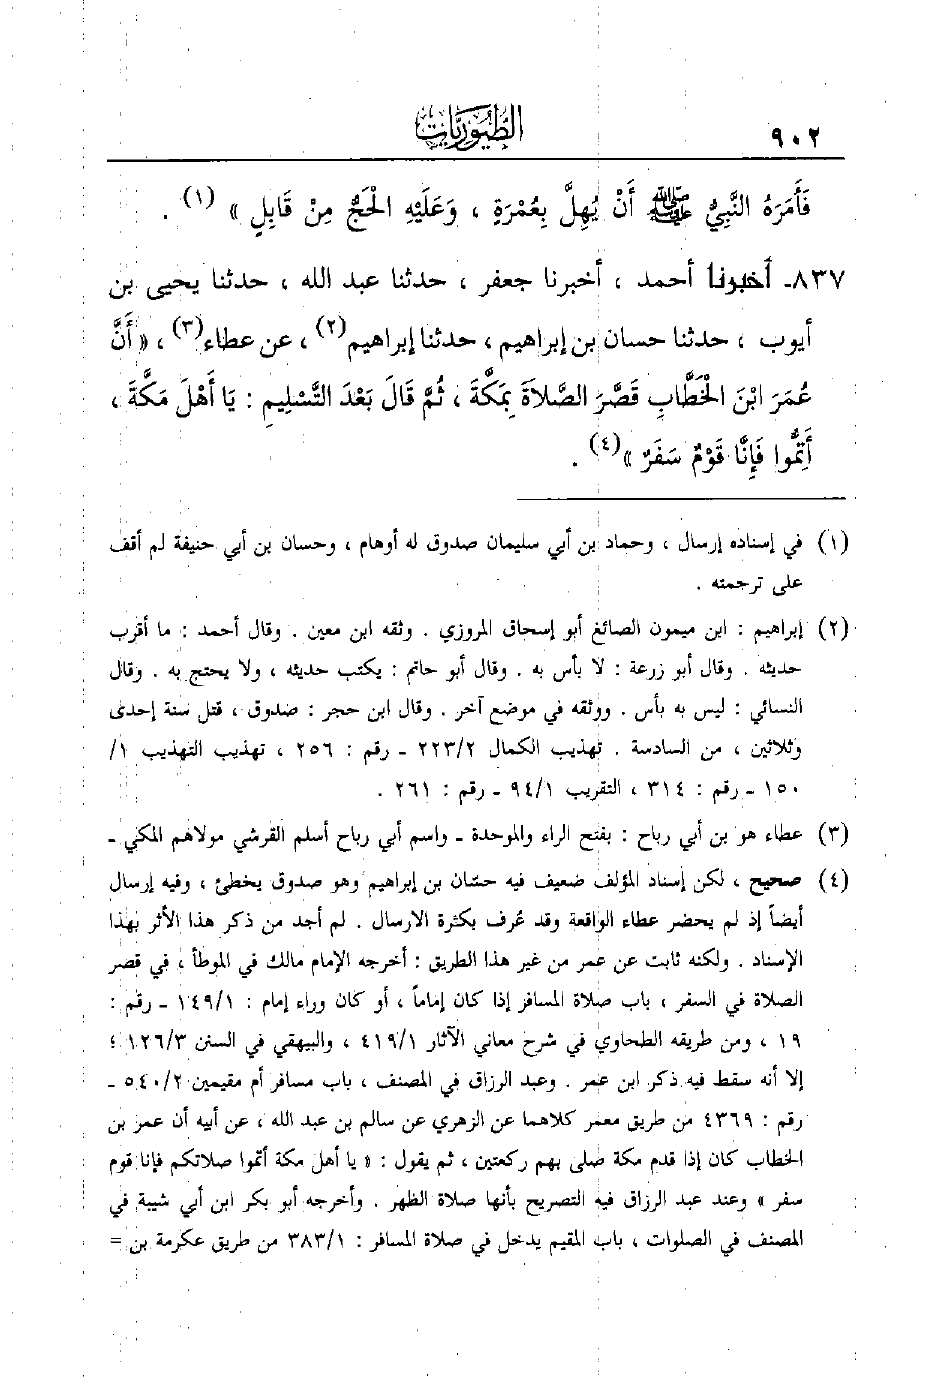 ٩٠٢
الطيوريات
فَأَمَرَهُ النَّبِيُّ ﷺ أَنْ يُهِلَّ بِعُمْرَةٍ ، وَعَلَيْهِ الْحَجُّ مِنْ قَابِلٍ » (١) .
٨٣٧ـ أخبرنا أحمد ، أخبرنا جعفر ، حدثنا عبد الله ، حدثنا يحيى بن
أيوب ، حدثنا حسان بن إبراهيم ، حدثنا إبراهيم(٢) ، عن عطاء(٣) ، « أَنَّ
عُمَرَ ابْنَ الْخَطَّابِ قَصَّرَ الصَّلاَةَ بِمَكَّةَ ، ثُمَّ قَالَ بَعْدَ التَّسْلِيمِ : يَا أَهْلَ مَكَّةَ ،
أَتِمُّوا فَإِنَّا قَوْمٌ سَفَرٌ »(٤) .
(١) في إسناده إرسال ، وحماد بن أبي سليمان صدوق له أوهام ، وحسان بن أبي حنيفة لم أقف
على ترجمته .
(٢) إبراهيم : ابن ميمون الصائغ أبو إسحاق المروزي . وثقه ابن معين . وقال أحمد : ما أقرب
حديثه . وقال أبو زرعة : لا بأس به . وقال أبو حاتم : يكتب حديثه ، ولا يحتج به . وقال
النسائي : ليس به بأس . ووثقه في موضع آخر . وقال ابن حجر : صدوق ، قتل سنة إحدى
وثلاثين ، من السادسة . تهذيب الكمال ٢٢٣/٢ ـ رقم : ٢٥٦ ، تهذيب التهذيب ١/
١٥٠ ـ رقم : ٣١٤ ، التقريب ٩٤/١ ـ رقم : ٢٦١ .
(٣) عطاء هو بن أبي رباح : بفتح الراء والموحدة ـ واسم أبي رباح أسلم القرشي مولاهم المكي ـ
(٤) صحيح ، لكن إسناد المؤلف ضعيف فيه حسّان بن إبراهيم وهو صدوق يخطئ ، وفيه إرسال
أيضاً إذ لم يحضر عطاء الواقعة وقد عُرف بكثرة الارسال . لم أجد من ذكر هذا الأثر بهذا
الإسناد . ولكنه ثابت عن عمر من غير هذا الطريق : أخرجه الإمام مالك في الموطأ ، في قصر
الصلاة في السفر ، باب صلاة المسافر إذا كان إماماً ، أو كان وراء إمام : ١٤٩/١ ـ رقم :
١٩ ، ومن طريقه الطحاوي في شرح معاني الآثار ٤١٩/١ ، والبيهقي في السنن ١٢٦/٣ ؛
إلا أنه سقط فيه ذكر ابن عمر . وعبد الرزاق في المصنف ، باب مسافر أم مقيمين ٥٤٠/٢ ـ
رقم : ٤٣٦٩ من طريق معمر كلاهما عن الزهري عن سالم بن عبد الله ، عن أبيه أن عمر بن
الخطاب كان إذا قدم مكة صلى بهم ركعتين ، ثم يقول : « يا أهل مكة أتموا صلاتكم فإنا قوم
سفر » وعند عبد الرزاق فيه التصريح بأنها صلاة الظهر . وأخرجه أبو بكر ابن أبي شيبة في
المصنف في الصلوات ، باب المقيم يدخل في صلاة المسافر : ٣٨٣/١ من طريق عكرمة بن =